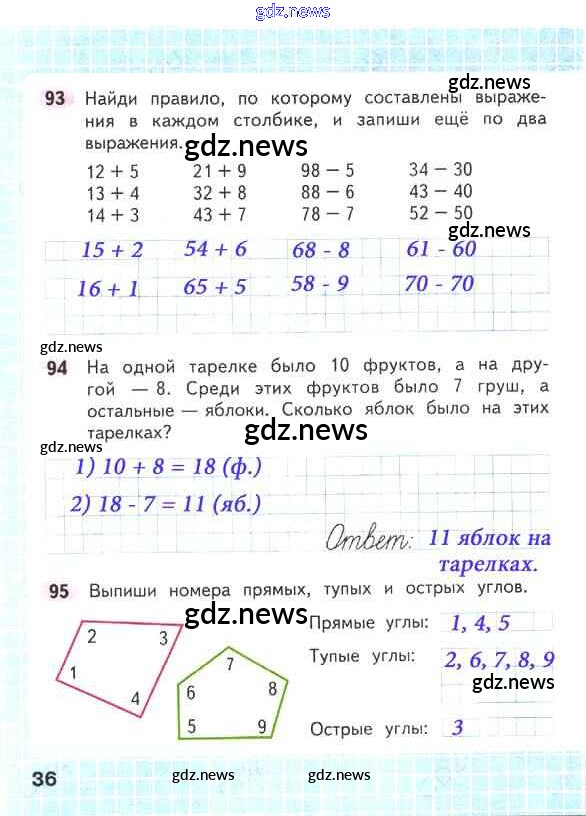 gdz.news
gdz.news
93 Найди правило, по которому составлены выраже-
ния в каждом столбике, и запиши ещё по два
выражения.
gdz.news
12 + 5 21 + 9 98 − 5 34 − 30
13 + 4 32 + 8 88 − 6 43 − 40
14 + 3 43 + 7 78 − 7 52 − 50
gdz.news
15 + 2 54 + 6 68 - 8 61 - 60
16 + 1 65 + 5 58 - 9 70 - 70
gdz.news
94 На одной тарелке было 10 фруктов, а на дру-
гой — 8. Среди этих фруктов было 7 груш, а
остальные — яблоки. Сколько яблок было на этих
тарелках?
gdz.news
gdz.news
1) 10 + 8 = 18 (ф.)
2) 18 - 7 = 11 (яб.)
Ответ: 11 яблок на
тарелках.
95 Выпиши номера прямых, тупых и острых углов.
gdz.news
Прямые углы: 1, 4, 5
Тупые углы: 2, 6, 7, 8, 9
gdz.news
Острые углы: 3
2 3
1 4
7
6 8
5 9
36
gdz.news gdz.news